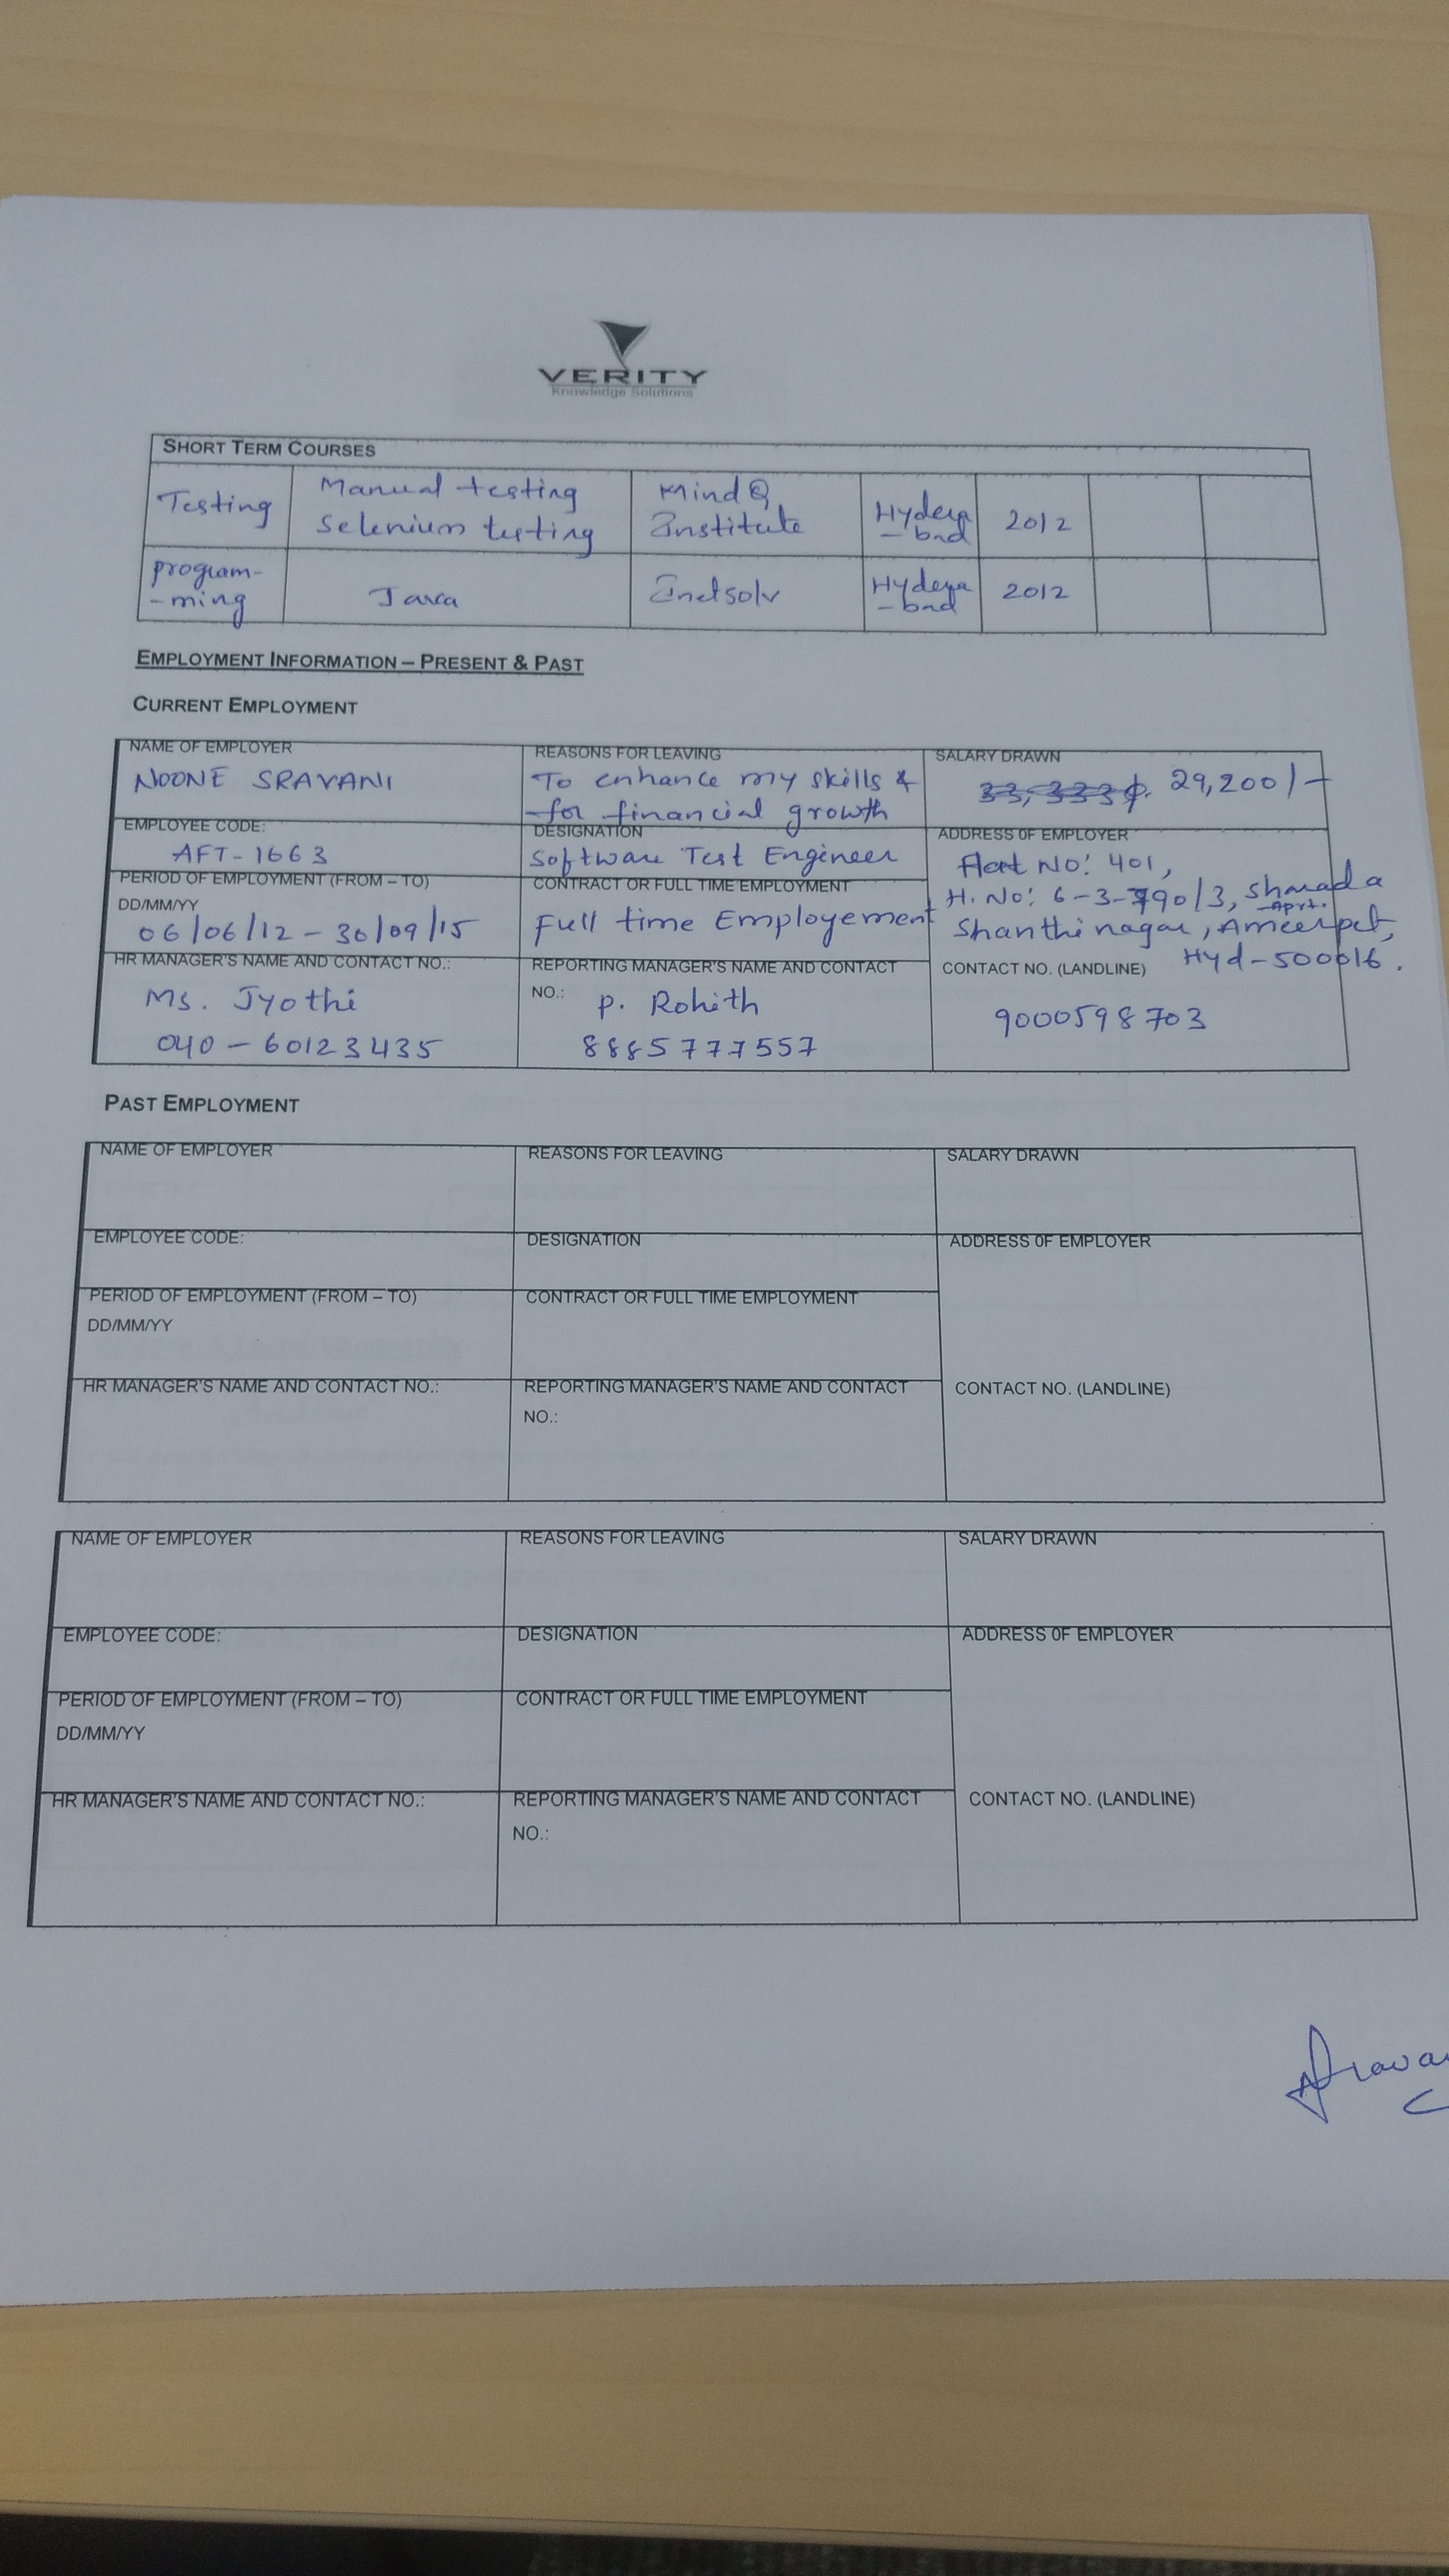 VERITY
Knowledge Solutions
SHORT TERM COURSES
Testing
Manual testing
Selenium testing
MindQ
Institute
Hydera
-bad
2012
program-
-ming
Java
Inetsolv
Hydera
-bad
2012
EMPLOYMENT INFORMATION – PRESENT & PAST
CURRENT EMPLOYMENT
NAME OF EMPLOYER
NOONE SRAVANI
REASONS FOR LEAVING
To enhance my skills &
for financial growth
SALARY DRAWN
29,200/-
EMPLOYEE CODE:
AFT-1663
DESIGNATION
Software Test Engineer
ADDRESS 0F EMPLOYER
Flat No: 401,
H. No: 6-3-790/3, Sharada
Aprt.
Shanthi nagar, Ameerpet,
Hyd-500016.
PERIOD OF EMPLOYMENT (FROM – TO)
DD/MM/YY
06/06/12 - 30/09/15
CONTRACT OR FULL TIME EMPLOYMENT
Full time Employement
HR MANAGER'S NAME AND CONTACT NO.:
Ms. Jyothi
040-60123435
REPORTING MANAGER'S NAME AND CONTACT
NO.:
P. Rohith
8885777557
CONTACT NO. (LANDLINE)
9000598703
PAST EMPLOYMENT
NAME OF EMPLOYER
REASONS FOR LEAVING
SALARY DRAWN
EMPLOYEE CODE:
DESIGNATION
ADDRESS 0F EMPLOYER
PERIOD OF EMPLOYMENT (FROM – TO)
DD/MM/YY
CONTRACT OR FULL TIME EMPLOYMENT
HR MANAGER'S NAME AND CONTACT NO.:
REPORTING MANAGER'S NAME AND CONTACT
NO.:
CONTACT NO. (LANDLINE)
NAME OF EMPLOYER
REASONS FOR LEAVING
SALARY DRAWN
EMPLOYEE CODE:
DESIGNATION
ADDRESS 0F EMPLOYER
PERIOD OF EMPLOYMENT (FROM – TO)
DD/MM/YY
CONTRACT OR FULL TIME EMPLOYMENT
HR MANAGER'S NAME AND CONTACT NO.:
REPORTING MANAGER'S NAME AND CONTACT
NO.:
CONTACT NO. (LANDLINE)